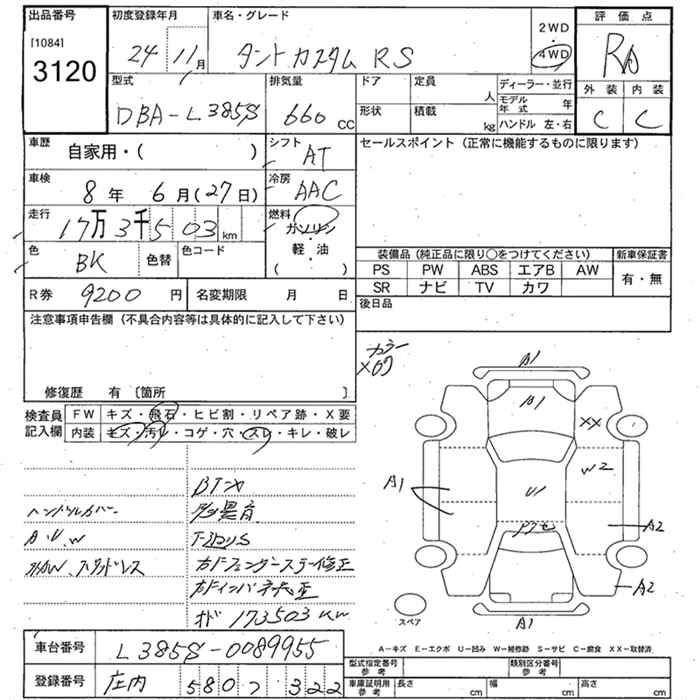 出品番号
[1084]
3120
初度登録年月
24 11月
車名・グレード
タントカスタム RS
2WD
4WD
評価点
RA
外装 内装
C C
型式
DBA-L385S
排気量
660 cc
ドア
定員
人
形状
積載
kg
ディーラー・並行
モデル年式 年
ハンドル 左・右
車歴
自家用・( )
シフト
AT
セールスポイント (正常に機能するものに限ります)
車検
8年 6月(27日)
冷房
AAC
走行
17万3千503km
燃料
ガソリン
・
軽油
( )
色
BK
色替
色コード
装備品 (純正品に限り○をつけてください)
新車保証書
PS PW ABS エアB AW
有・無
SR ナビ TV カワ
R券 9200 円
名変期限 月 日
後日品
注意事項申告欄 (不具合内容等は具体的に記入して下さい)
修復歴 有 [箇所 ]
カラー
X07
検査員記入欄
FW キズ・飛石・ヒビ割・リペア跡・X要
内装 キズ・汚レ・コゲ・穴・スレ・キレ・破レ
A1
A1
XX
W2
U1
A1
A2
A2
A1
スペア
ハンドルカバー
A・U・W
173503 km
A-キズ E-エクボ U-凹み W-補修跡 S-サビ C-腐食 XX-取替済
車台番号
L385S-0089955
登録番号
庄内 580 322
型式指定番号
参考
類別区分番号
参考
車庫証明用
参考
長さ cm
幅 cm
高さ cm